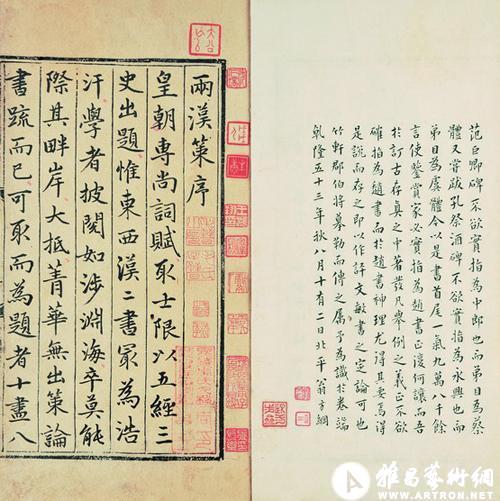 范巨卿碑不欲實指為中郎也而弟目為蔡
體又嘗跋孔祭酒碑不欲實指為永興也而
弟目為虞體今以是書首尾一氣九萬八千餘
言使鑒賞家必實指為趙書正復何讓而吾
於訂古存真之中著發凡舉例之義正不欲
確指為趙書而於趙書神理尤得其妥為得
是說而存之即以作評文敏書之定論可也
竹軒郡伯將摹勒而傳之屬予為識於卷端
乾隆五十三年秋八月十有二日北平翁方綱
兩漢策序
皇朝專尚詞賦取士限以五經三
史出題惟東西漢二書冣為浩
汗學者披閱如涉淵海卒莫能
際其畔岸大抵菁華無出策論
書疏而已可取而為題者十盡八
雅昌藝術網
WWW.ARTRON.NET